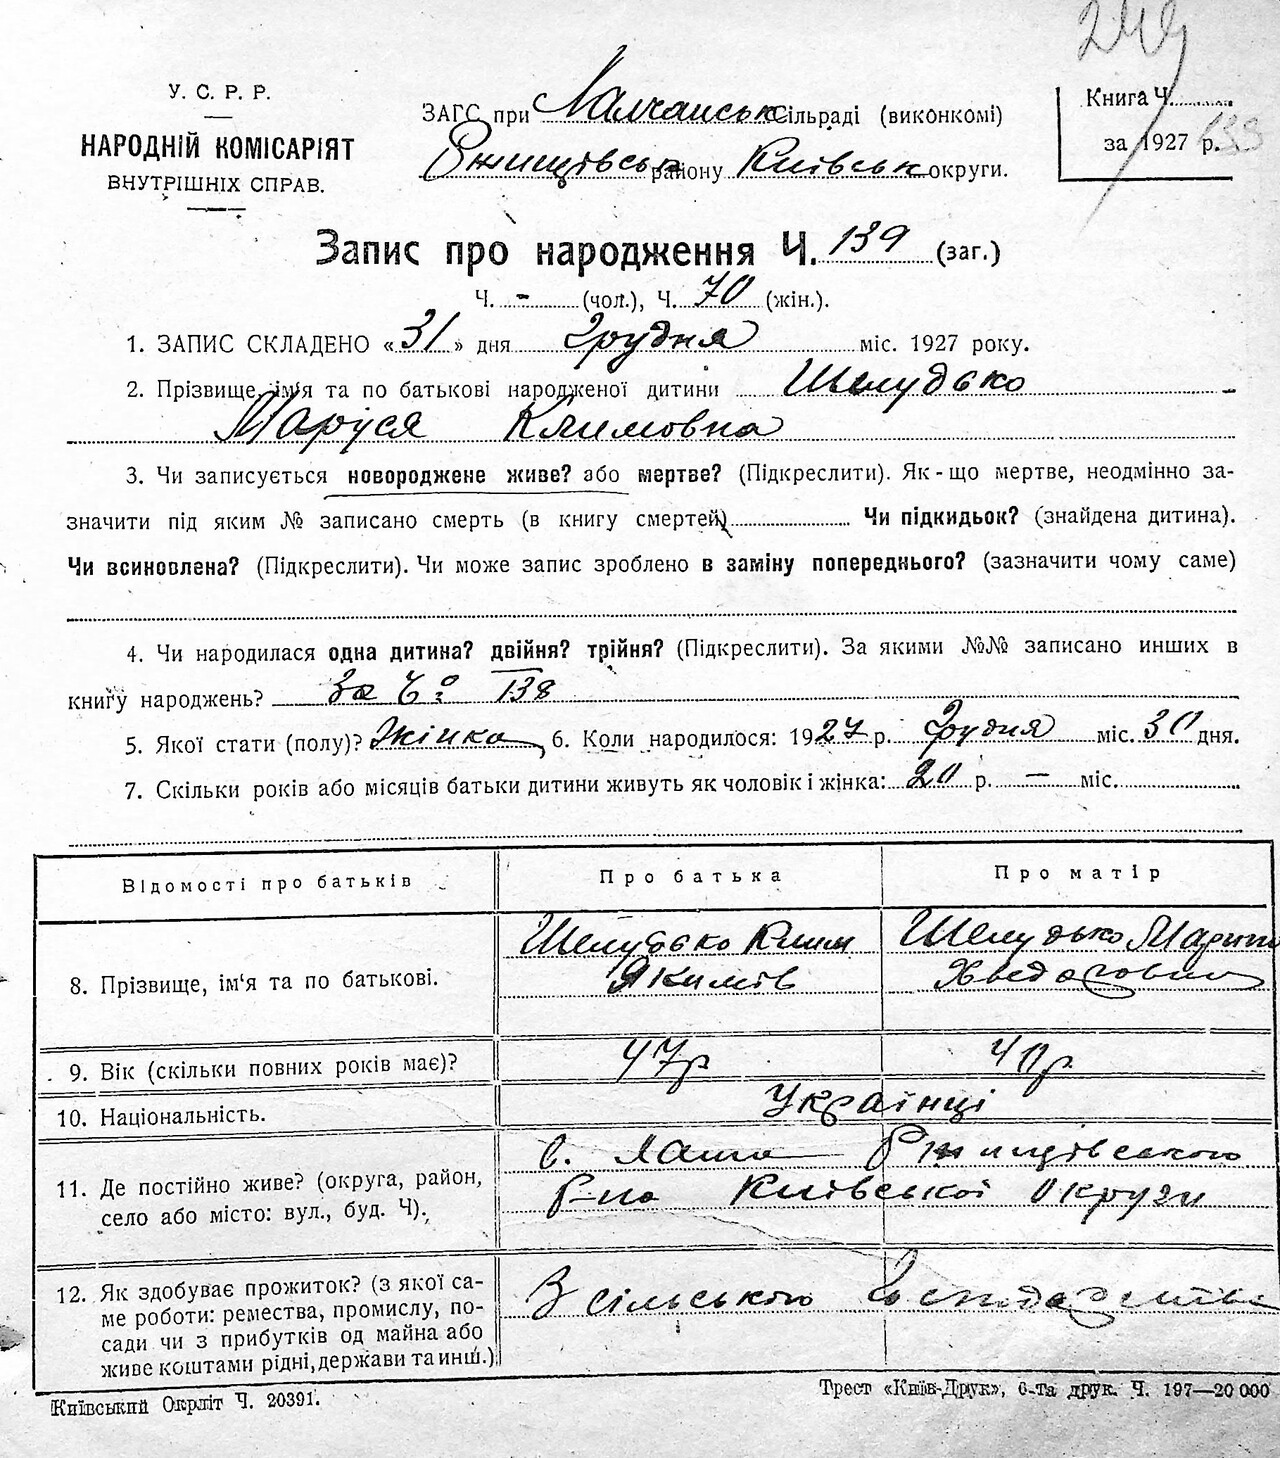 249
У. С. Р. Р.
НАРОДНІЙ КОМІСАРІЯТ
ВНУТРІШНІХ СПРАВ.
ЗАГС при сільраді (виконкомі)
Ржищівськ району Київськ округи.
Книга Ч.
за 1927 р. 139
Запис про народження Ч. 139 (заг.)
Ч. - (чол.), Ч. 70 (жін.).
1. ЗАПИС СКЛАДЕНО «31» дня Грудня міс. 1927 року.
2. Прізвище, ім'я та по батькові народженої дитини Шелудько
Маруся Климовна
3. Чи записується новороджене живе? або мертве? (Підкреслити). Як-що мертве, неодмінно за-
значити під яким № записано смерть (в книгу смертей) Чи підкидьок? (знайдена дитина).
Чи всиновлена? (Підкреслити). Чи може запис зроблено в заміну попереднього? (зазначити чому саме)
4. Чи народилася одна дитина? двійня? трійня? (Підкреслити). За якими №№ записано инших в
книгу народжень? За Ч: 138
5. Якої стати (полу)? Жінка 6. Коли народилося: 1927 р. Грудня міс. 30 дня.
7. Скільки років або місяців батьки дитини живуть як чоловік і жінка: 20 р. — міс.
Відомості про батьків Про батька Про матір
8. Прізвище, ім'я та по батькові. Шелудько Клим Шелудько Марина
Якимів
9. Вік (скільки повних років має)? 47р 40р.
10. Національність. Українці
11. Де постійно живе? (округа, район, с. Ржищівського
село або місто: вул., буд. Ч). Р-на Київської Округи
12. Як здобуває прожиток? (з якої са-
ме роботи: ремества, промислу, по- З сільського господарства
сади чи з прибутків од майна або
живе коштами рідні, держави та инш.)
Київський Окрліт Ч. 20391.
Трест «Київ-Друк», 6-та друк. Ч. 197—20 000